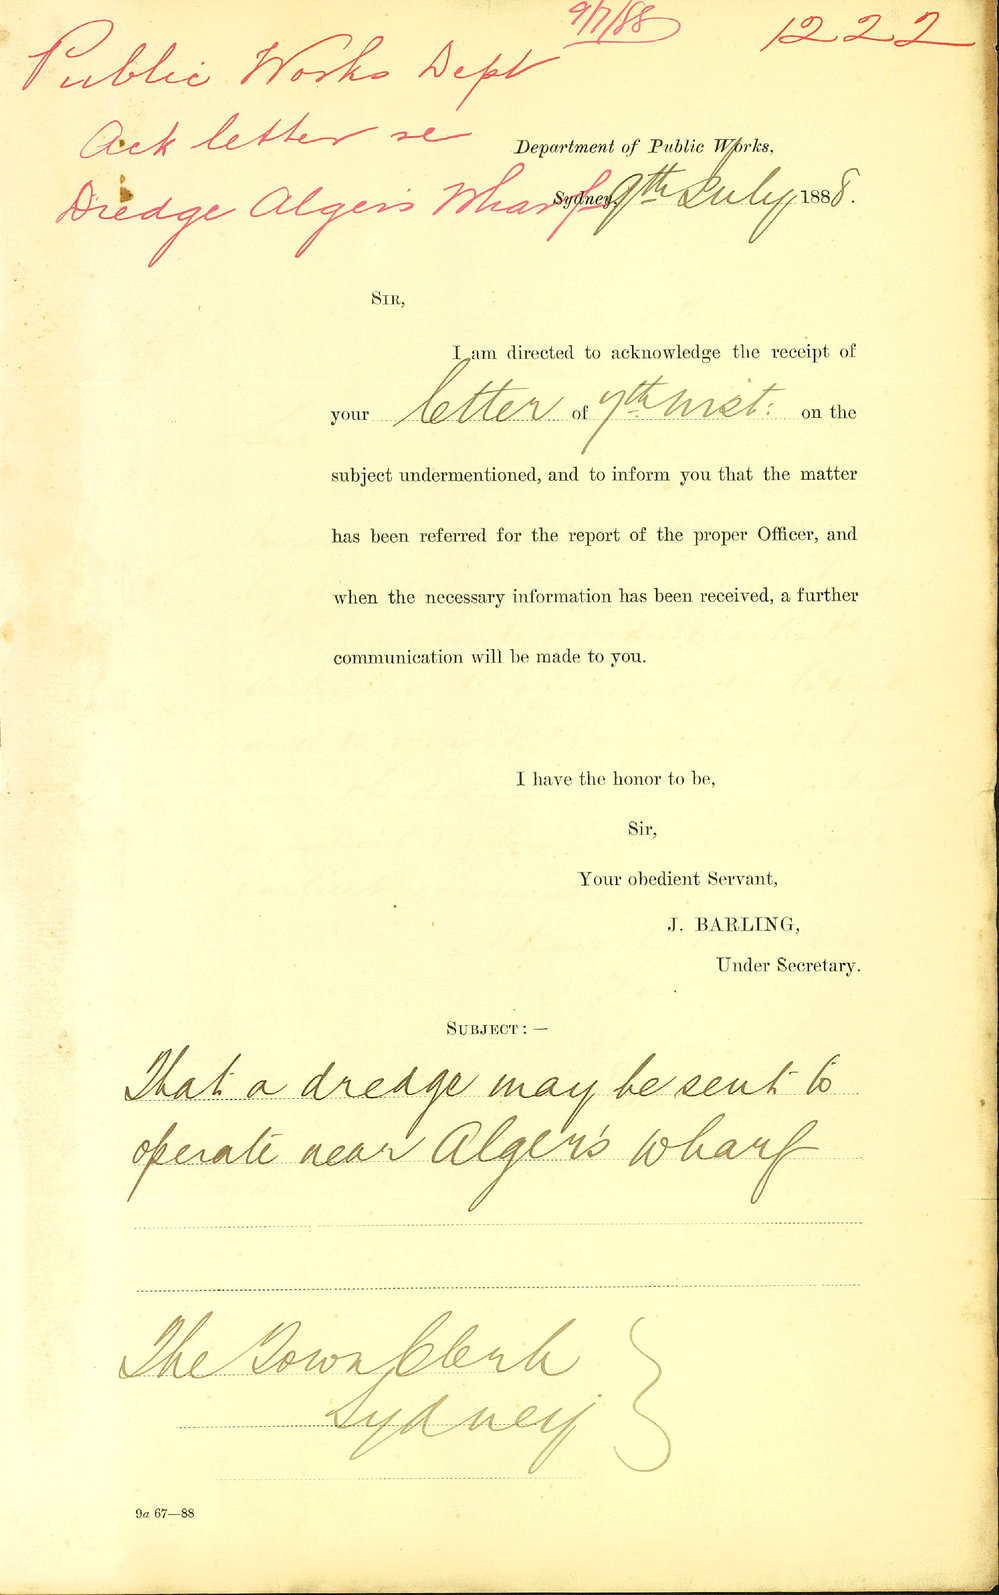 9/7/88
1222
Public Works Dept
Ack letter re
Dredge Algers Wharf
Department of Public Works,
Sydney, 9th July 1888.
SIR,
I am directed to acknowledge the receipt of
your letter of 7th inst: on the
subject undermentioned, and to inform you that the matter
has been referred for the report of the proper Officer, and
when the necessary information has been received, a further
communication will be made to you.
I have the honor to be,
Sir,
Your obedient Servant,
J. BARLING,
Under Secretary.
SUBJECT:—
That a dredge may be sent to
operate near Alger's Wharf
The Town Clerk
Sydney
9a 67—88